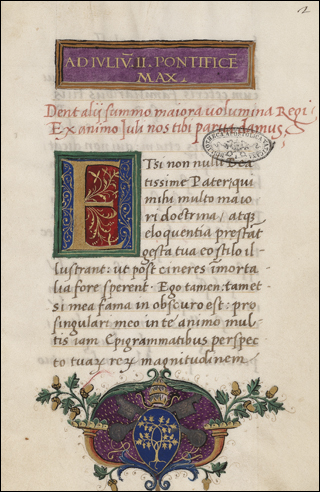 2
AD IVLIV̄. II. PONTIFICĒ
MAX.
Dent alij summo maiora volumina Regi,
Ex animo Iula nos tibi parua damus.
ETsi non nulli Bea
tissime Pater, qui
mihi multo maio
ri doctrina, atq3
eloquentia prestāt
gesta tua eo stilo il
lustrant: ut post cineres immorta
lia fore sperent. Ego tamen: tamet
si mea fama in obscuro est: pro
singulari meo in te animo mul
tis iam Epigrammatibus perspec
to tuarȝ rerȝ magnitudinem